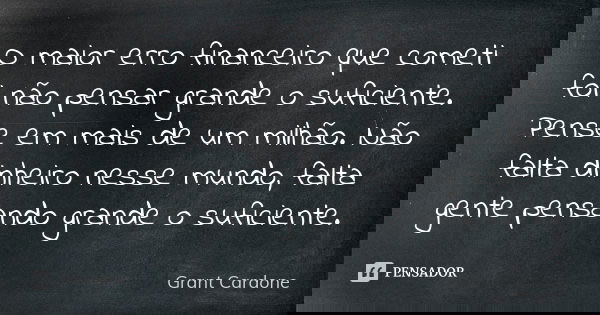 O maior erro financeiro que cometi
foi não pensar grande o suficiente.
Pense em mais de um milhão. Não
falta dinheiro nesse mundo, falta
gente pensando grande o suficiente.
Grant Cardone
PENSADOR